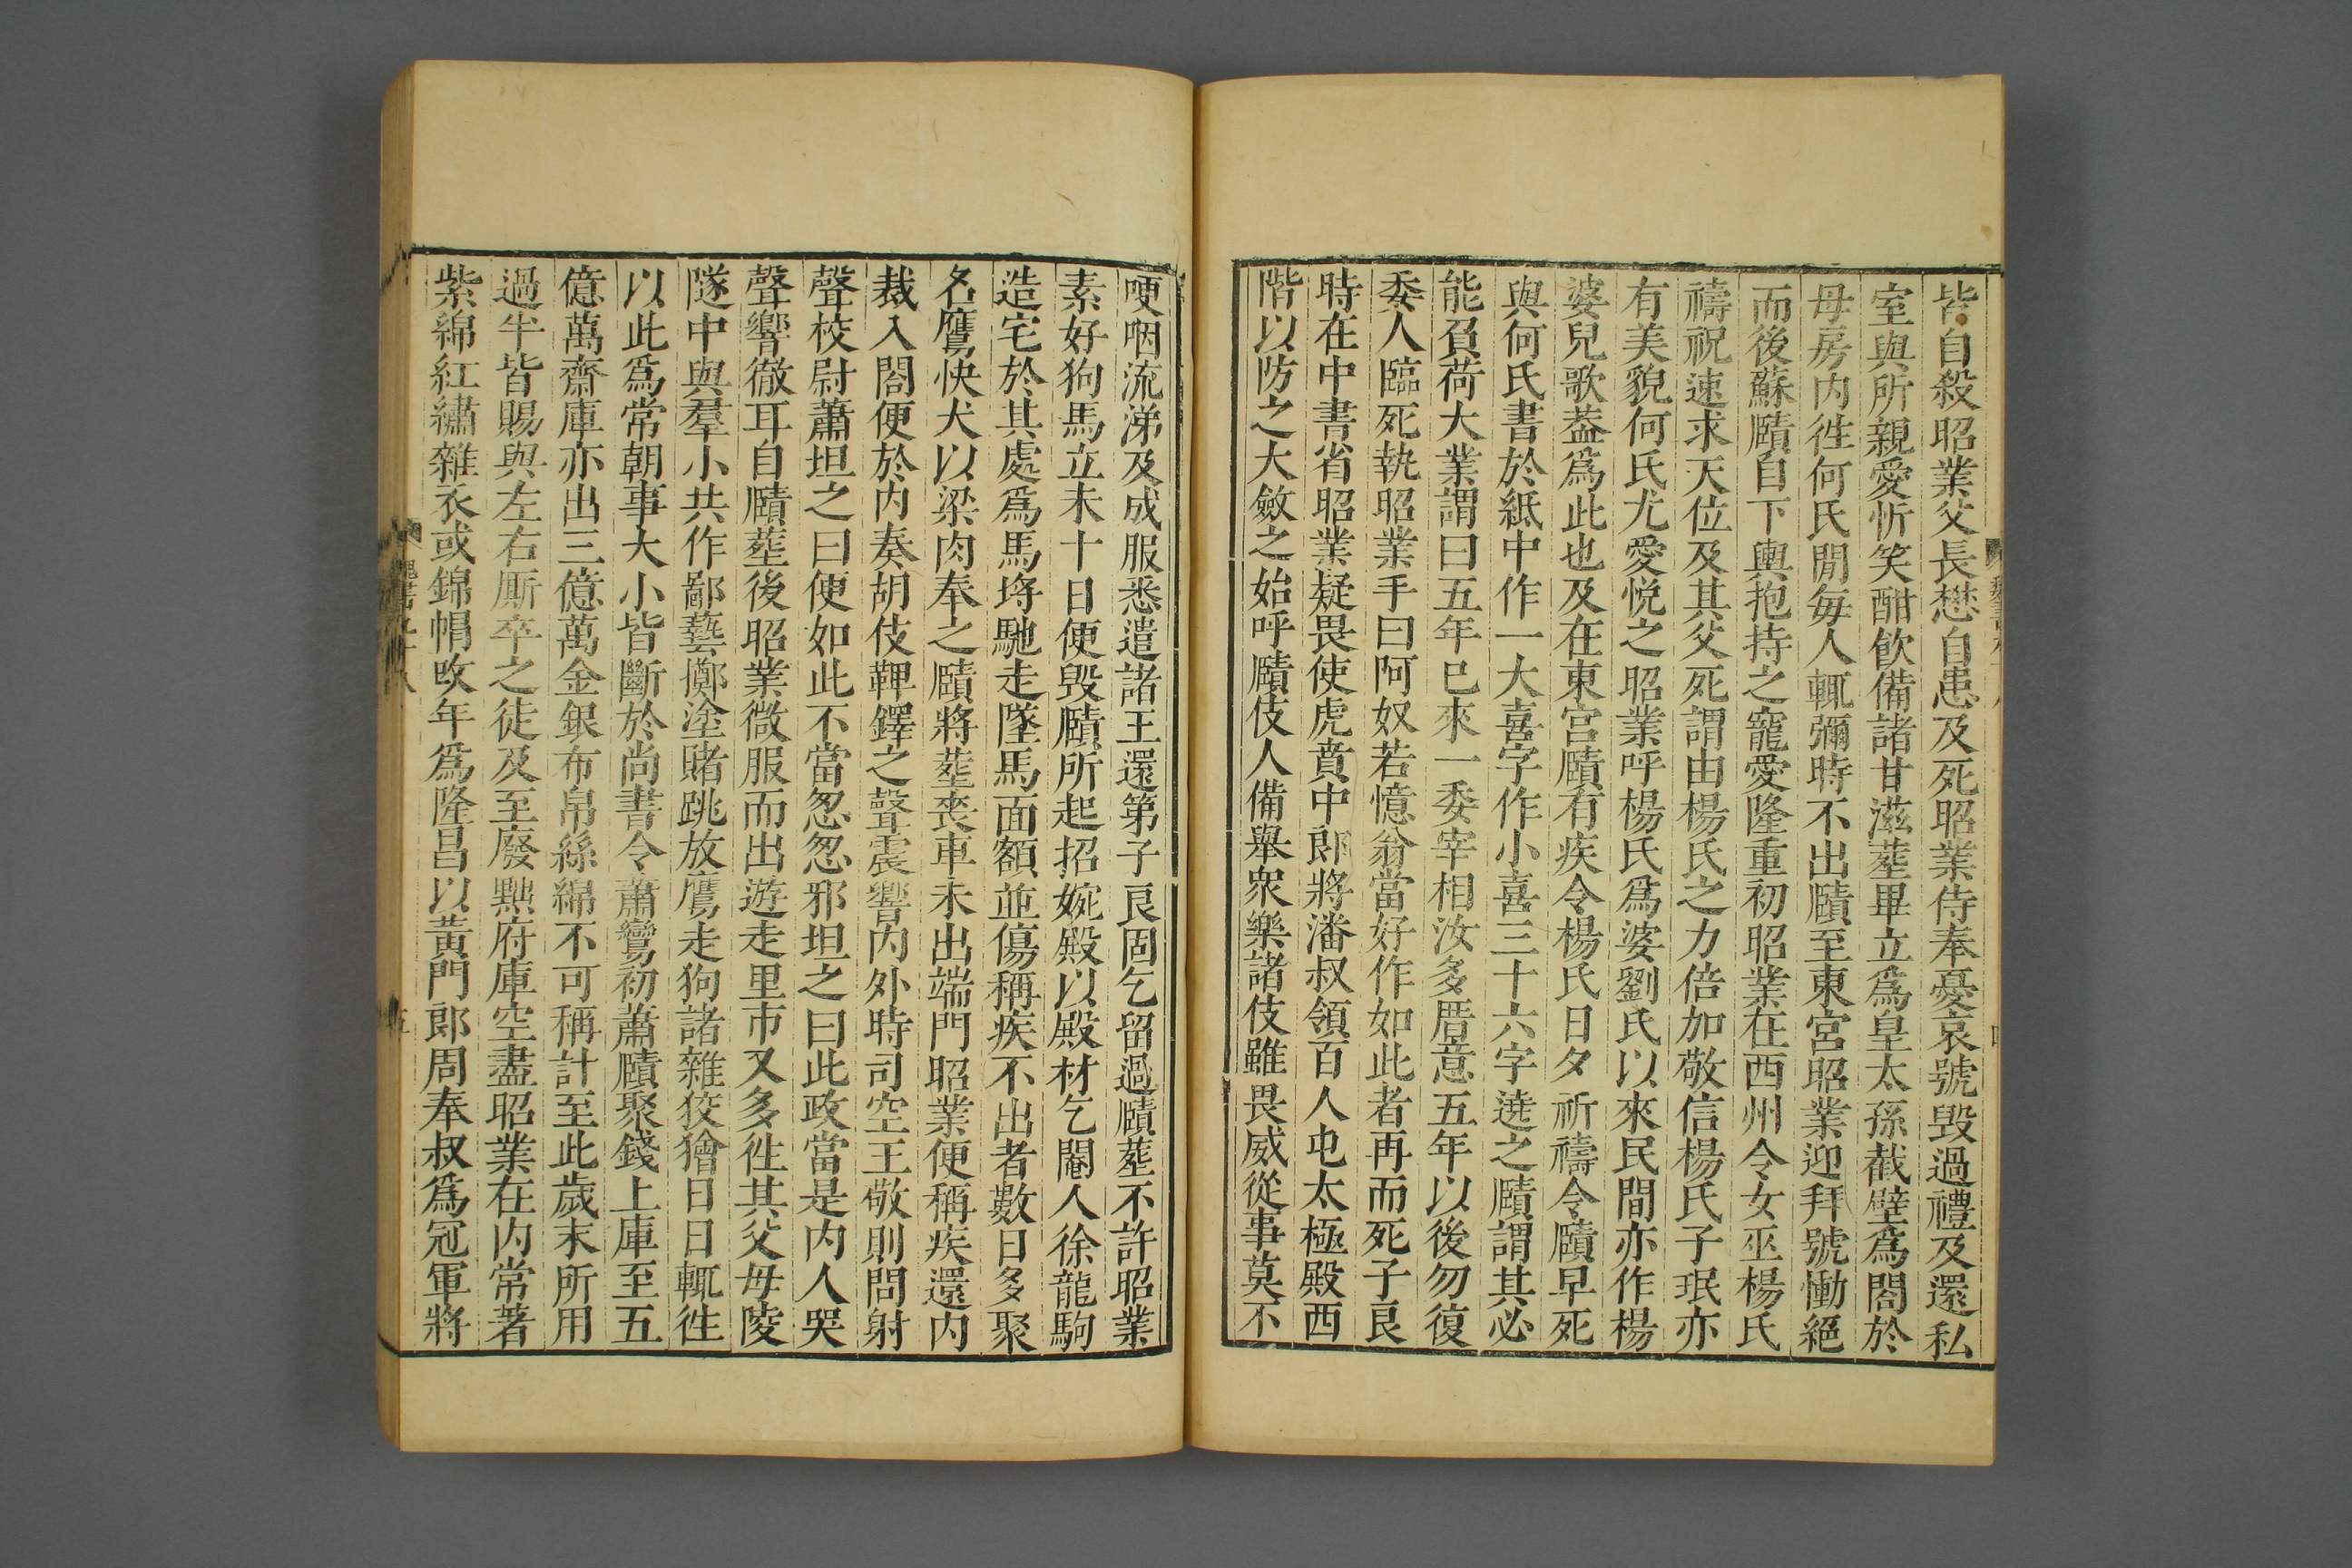 皆自殺昭業父長懋自患及死昭業侍奉憂哀號毀過禮及還私
室與所親愛忻笑酣飲備諸甘滋葬畢立爲皇太孫截壁爲閤於
母房内徃何氏閒每人輒彌時不出賾至東宮昭業迎拜號慟絕
而後蘇賾自下輿抱持之寵愛隆重初昭業在西州令女巫楊氏
禱祝速求天位及其父死謂由楊氏之力倍加敬信楊氏子珉亦
有美貌何氏尤愛悅之昭業呼楊氏爲婆劉氏以來民間亦作楊
婆兒歌蓋爲此也及在東宮賾有疾令楊氏日夕祈禱令賾早死
與何氏書於紙中作一大喜字作小喜三十六字遶之賾謂其必
能負荷大業謂曰五年已來一委宰相汝多厝意五年以後勿復
委人臨死執昭業手曰阿奴若憶翁當好作如此者再而死子良
時在中書省昭業疑畏使虎賁中郎將潘叔領百人屯太極殿西
階以防之大斂之始呼賾伎人備舉衆樂諸伎雖畏威從事莫不
哽咽流涕及成服悉遣諸王還第子良固乞留過賾葬不許昭業
素好狗馬立未十日便毀賾所起招婉殿以殿材乞閹人徐龍駒
造宅於其處爲馬埒馳走墜馬面額並傷稱疾不出者數日多聚
名鷹快犬以梁肉奉之賾將葬喪車未出端門昭業便稱疾還内
裁入閤便於内奏胡伎鞞鐸之聲震響内外時司空王敬則問射
聲校尉蕭坦之曰便如此不當怱怱邪坦之曰此政當是内人哭
聲響徹耳自賾葬後昭業微服而出遊走里市又多徃其父母陵
隧中與羣小共作鄙藝擲塗賭跳放鷹走狗諸雜狡獪日日輒徃
以此爲常朝事大小皆斷於尚書令蕭鸞初蕭賾聚錢上庫至五
億萬齋庫亦出三億萬金銀布帛絲綿不可稱計至此歲末所用
過半皆賜與左右厮卒之徒及至廢黜府庫空盡昭業在内常著
紫綿紅繡雜衣或錦帽改年爲隆昌以黃門郎周奉叔爲冠軍將